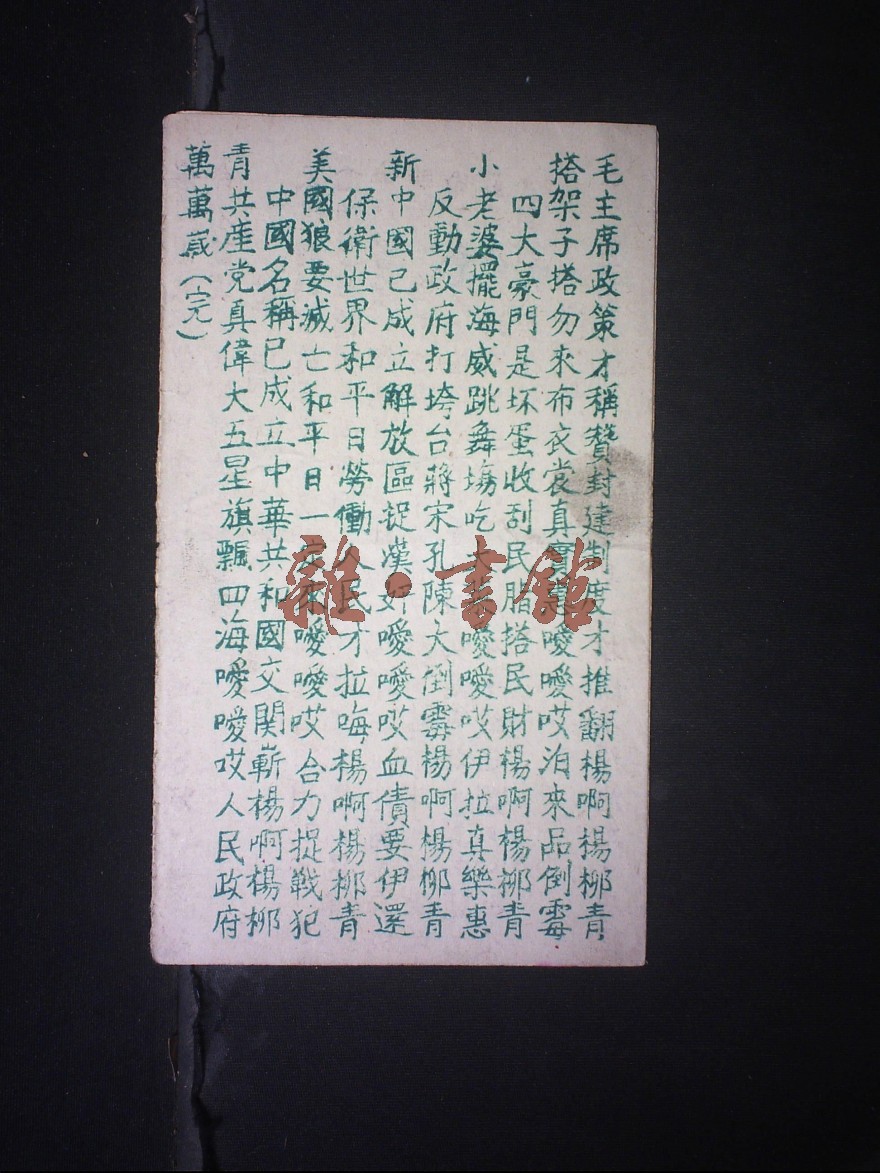 毛主席政策才稱贊封建制度才推翻楊啊楊柳青
搭架子搭勿來布衣裳真惠噯噯哎泊來品倒霉
四大豪門是坏蛋收刮民脂搭民財楊啊楊柳青
小老婆擺海威跳舞塲吃大菜噯噯哎伊拉真樂惠
反動政府打垮台蔣宋孔陳大倒霉楊啊楊柳青
新中國已成立解放區捉漢奸噯噯哎血債要伊還
保衛世界和平日勞働人民才拉嗨楊啊楊柳青
美國狼要滅亡和平日一定來噯噯哎合力捉戰犯
中國名稱已成立中華共和國交関嶄楊啊楊柳
青共產党真偉大五星旗飄四海噯噯哎人民政府
萬萬歲(完)
雜·書館